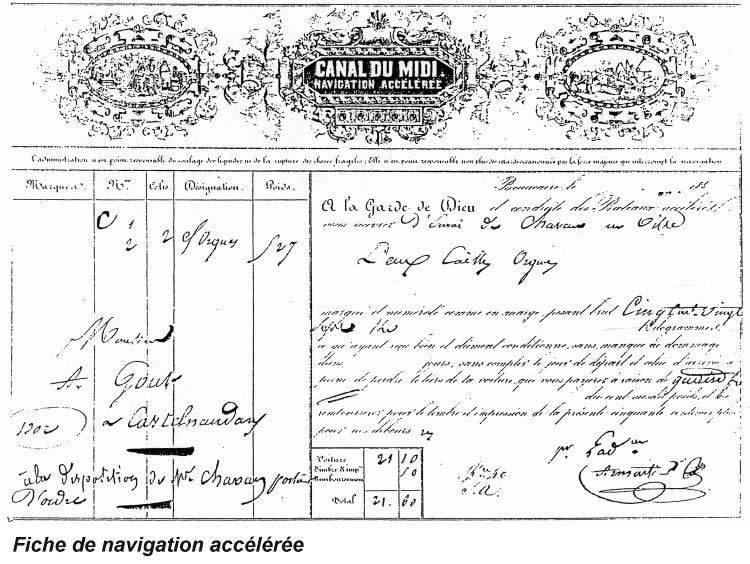 CANAL DU MIDI
NAVIGATION ACCÉLÉRÉE
L'administration n'est point responsable du coulage des liquides ni de la rupture des choses fragiles; Elle n'est point responsable non plus de retards occasionnés par la force majeure qui interrompt la navigation
Marques. Nos Colis Désignation. Poids.
Beaucaire le 18
A la Garde de Dieu et conduite des Bateaux accélérés
vous recevrez d'Envoi de Chavan en Ville
C 1
2 2 c/ Orgues 527
Deux Caisses Orgues
marqué et numéroté comme en marge, pesant brut Cinq cent Vingt
sept Kilogrammes.
Monsieur
ce qu'ayant reçu bien et dûment conditionné, sans manque ni dommage
dans jours, sans compter le jour de départ et celui d'arrivée à
A. Gout
peine de perdre le tiers de la voiture, que vous payerez à raison de
dix cent susdit poids, et
1202 à Castelnaudary
rembourserez pour le timbre et impression de la présente cinquante centimes plus
pour ses débours
à la disposition de Mr Chavan
D'ordre
Voiture 21 10
Timbre & imp. 50
Remboursement
Total 21. 60
Fiche de navigation accélérée